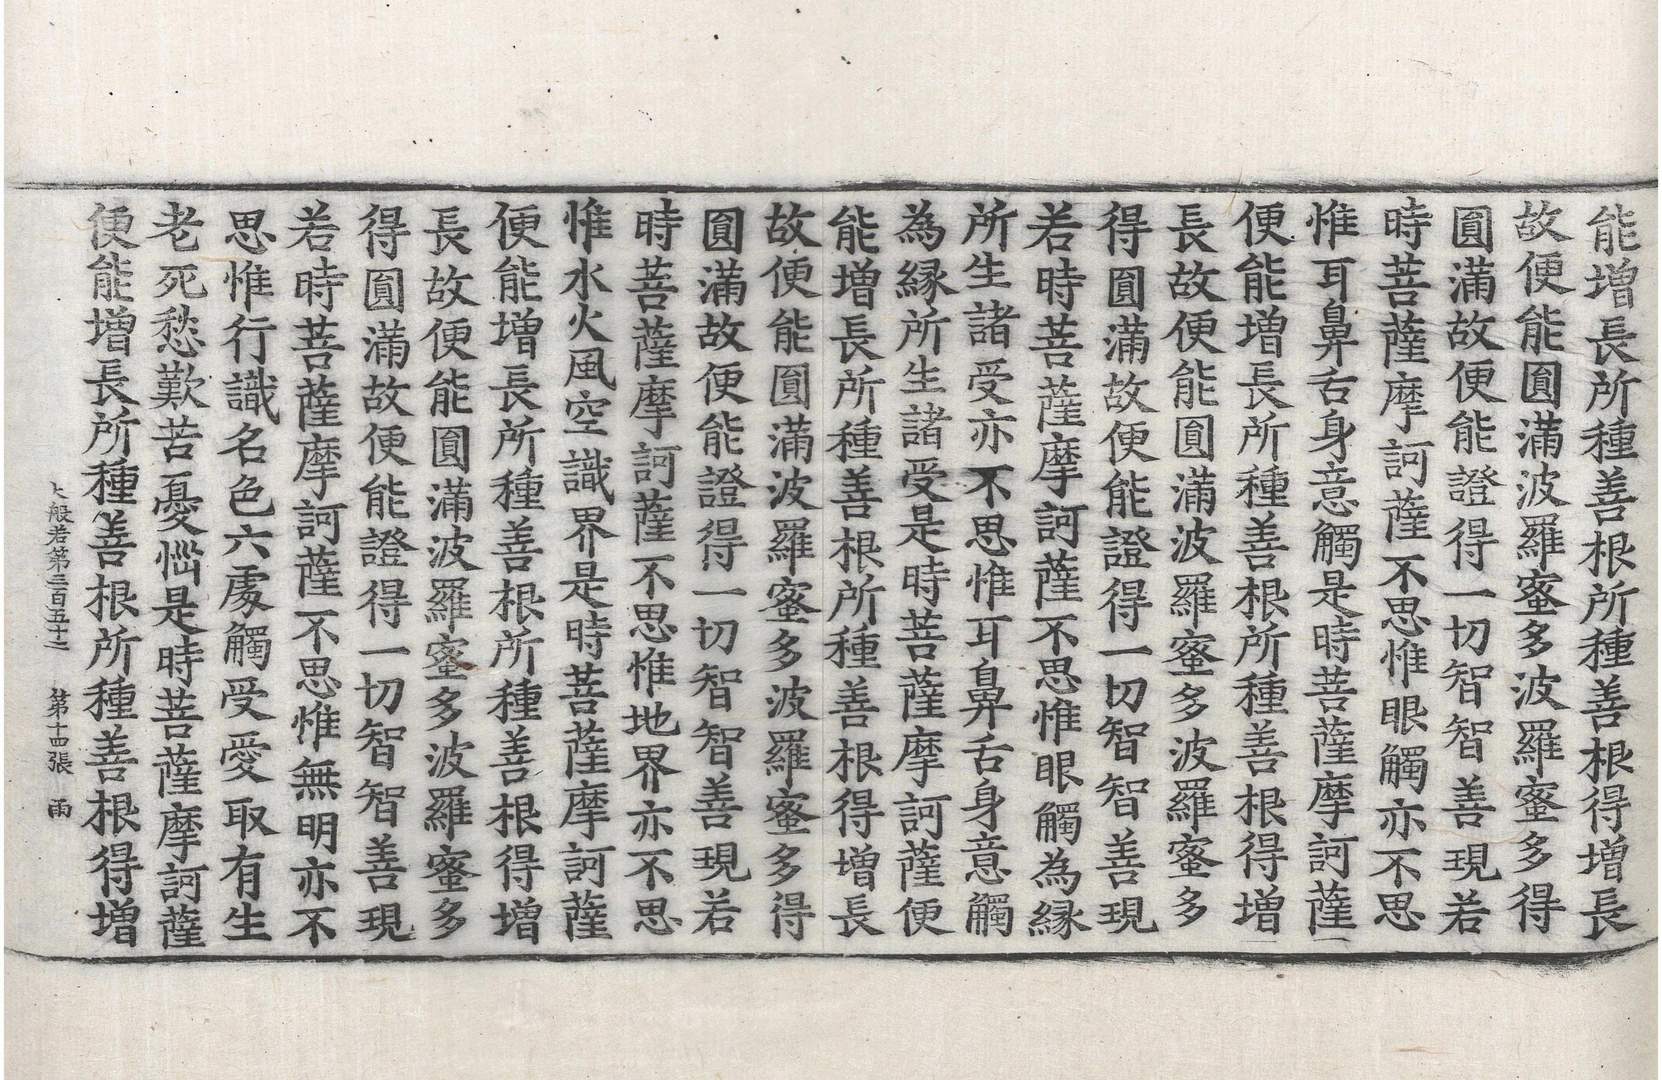 能增長所種善根所種善根得增長
故便能圓滿波羅蜜多波羅蜜多得
圓滿故便能證得一切智智善現若
時菩薩摩訶薩不思惟眼觸亦不思
惟耳鼻舌身意觸是時菩薩摩訶薩
便能增長所種善根所種善根得增
長故便能圓滿波羅蜜多波羅蜜多
得圓滿故便能證得一切智智善現
若時菩薩摩訶薩不思惟眼觸為縁
所生諸受亦不思惟耳鼻舌身意觸
為縁所生諸受是時菩薩摩訶薩便
能增長所種善根所種善根得增長
故便能圓滿波羅蜜多波羅蜜多得
圓滿故便能證得一切智智善現若
時菩薩摩訶薩不思惟地界亦不思
惟水火風空識界是時菩薩摩訶薩
便能增長所種善根所種善根得增
長故便能圓滿波羅蜜多波羅蜜多
得圓滿故便能證得一切智智善現
若時菩薩摩訶薩不思惟無明亦不
思惟行識名色六處觸受愛取有生
老死愁歎苦憂惱是時菩薩摩訶薩
便能增長所種善根所種善根得增
大般若第三百五十二 第十四張 雨